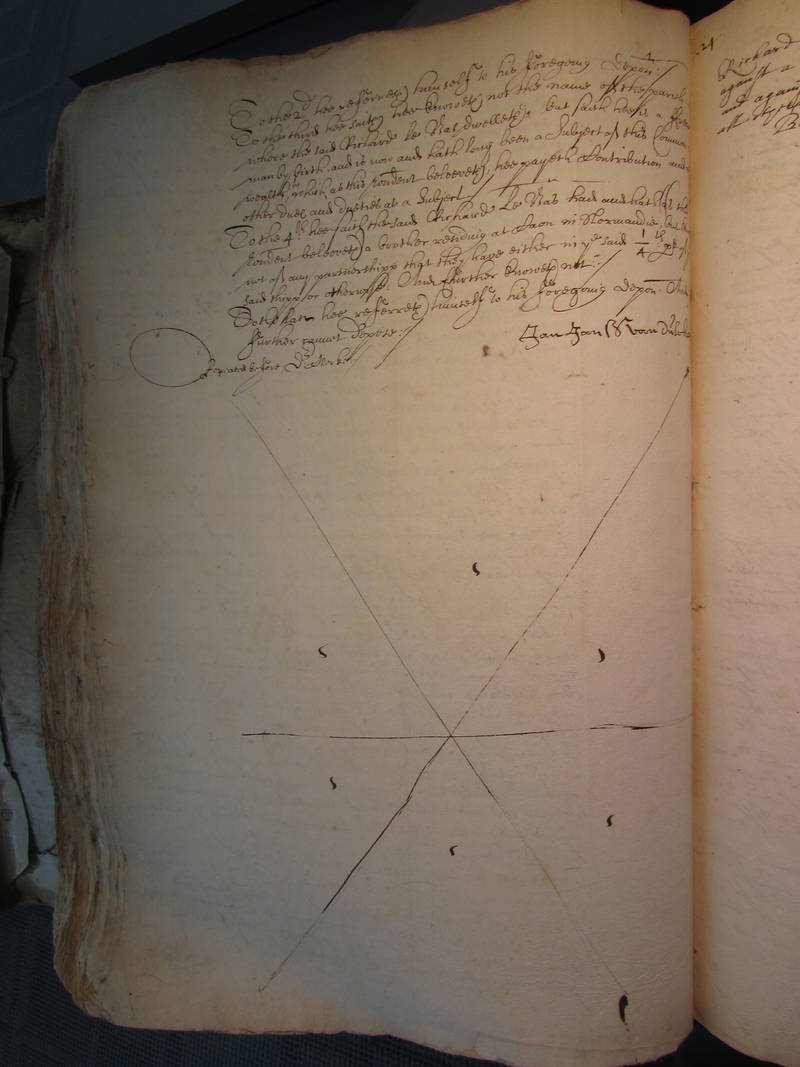 To the 2d hee referreth himselfe to his foregoing depon:
To the third hee saith hee knoweth not the name of the parish
where the said Richard le Nas dwelleth, but saith hee is a
man by birth, and is now and hath long been a Subject of this Common
wealth, which as this rondent beleeveth, hee payeth Contribution and
other dues and duties as a Subject
To the 4th hee saith the said Richard Le Nas had and hath (as this
rondent beleeveth) a brother residing at in Normandie, but
not of any partnershipp that they have either in ye said 1/4th pte of
said shipp or otherwise. And further knoweth not:
To the hee referreth himselfe to his foregoing depon. And
further cannot depose:
Jan Jan van
Repeated before Dr
24
Richard
against a
and again
all